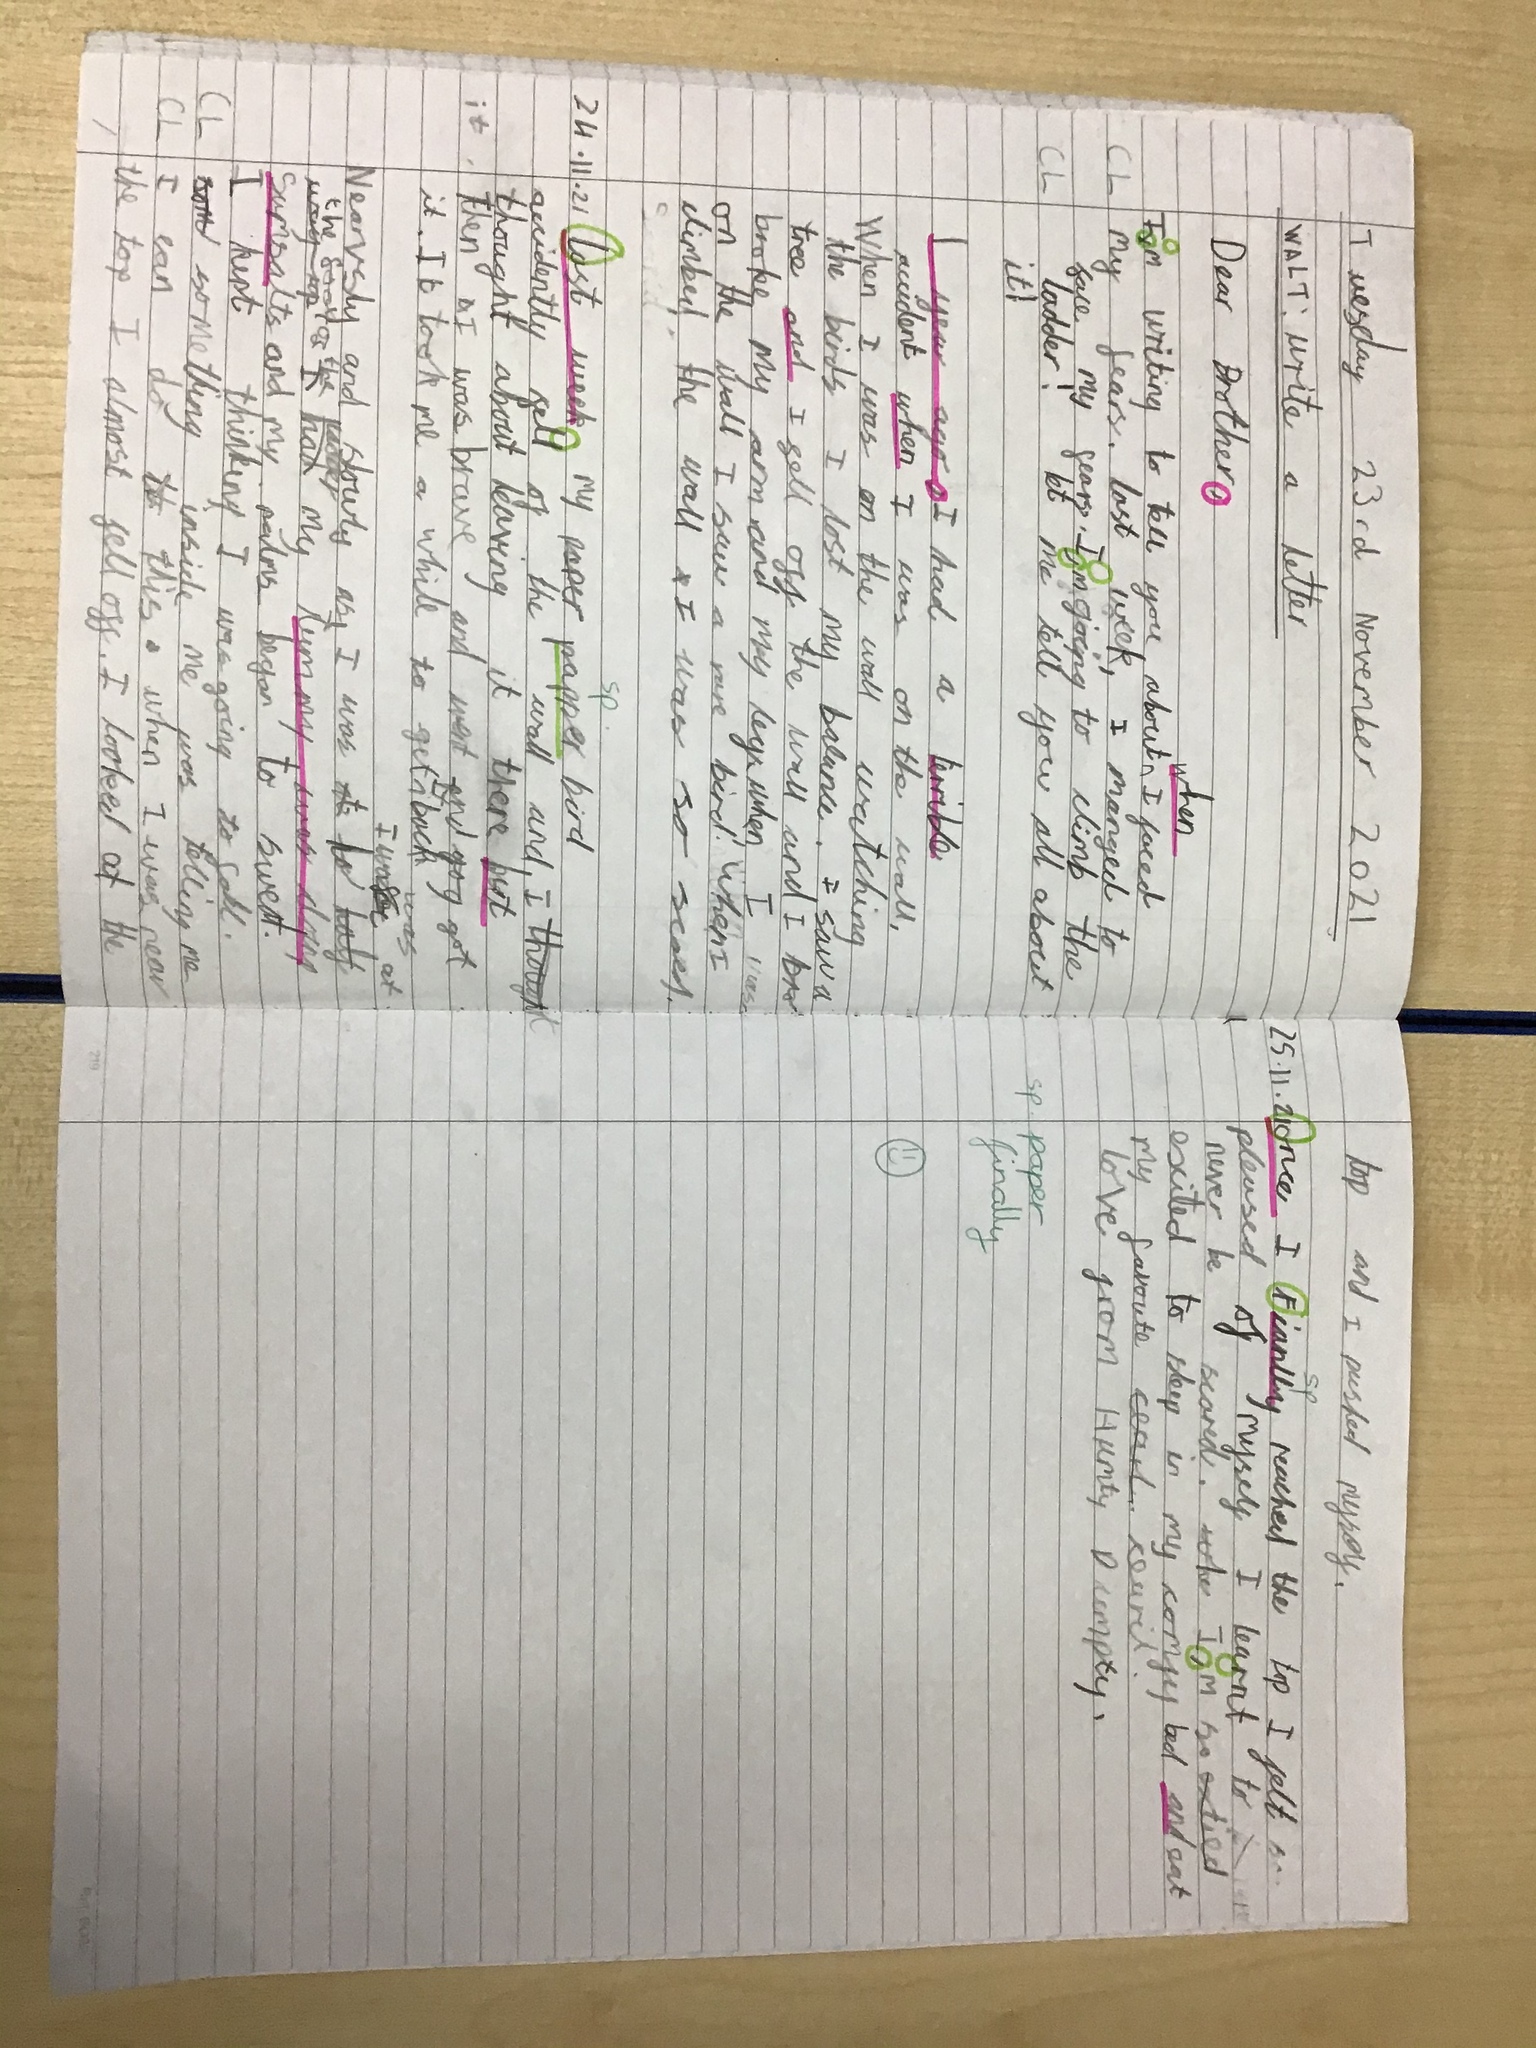 Tuesday 23rd November 2021
WALT: write a letter
Dear Brother,
when
CL I'm writing to tell you about I faced
my fears. last week, I manged to
CL face my fears. I'm going to climb the
ladder! let me tell you all about
it!
1 year ago, I had a terrible
accident when I was on the wall.
When I was on the wall watching
the birds I lost my balance. I saw a
tree and I fell off the wall and I
broke my arm and my legs when I was
on the wall I saw a rare bird! when I
climbed the wall I was so scared.
sp.
24.11.21 Last week, my paper papper bird
accidently fell of the wall and I
thought about leaving it there but
it. then I was brave and went and got
it. It took me a while to get back
I was at
Nearvsly and slowly as I was
the
had my tummy was doing
sumsalts and my palms began to swest.
I kept thinking I was going to fall.
CL something inside me was telling me
CL I can do this. when I was near
the top I almost fell off. I looked at the
top and I pushed mysoy.
sp
25.11.21 Once I Fianlly reached the top I felt so
pleased of myself I learnt to
never be scared. I'm so
excited to sleep in my comfy bed and eat
my favoute
love from Humty Dumpty.
sp. paper
finally